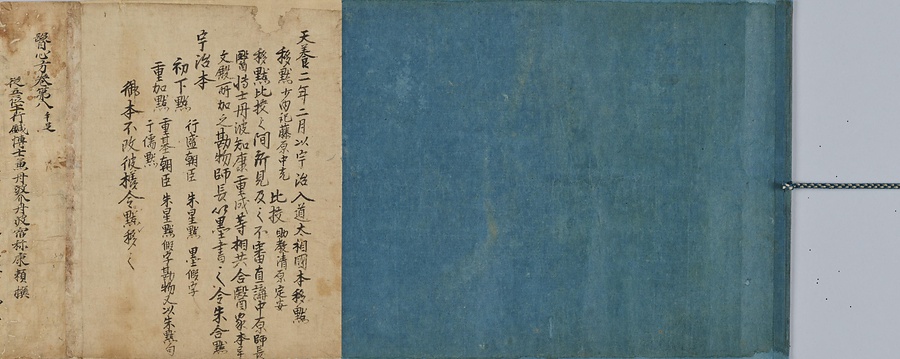 天養二年二月以宇治入道太相國本移點
移點少内記藤原中光 比校助教清原定安
移點比校之間所見及之不審直講中原師長
醫博士丹波知康重成等相共合醫家本等
文殿所加之勘物師長以墨書之令朱合點
宇治本
初下點 行盛朝臣 朱星點 墨假字
重加點 重基朝臣 朱星點假字勘物又以朱點句
于儒點
御本不改彼樣令點移之
醫心方卷第八 手足
從五位下行鍼博士兼丹波介丹波宿祢康頼撰